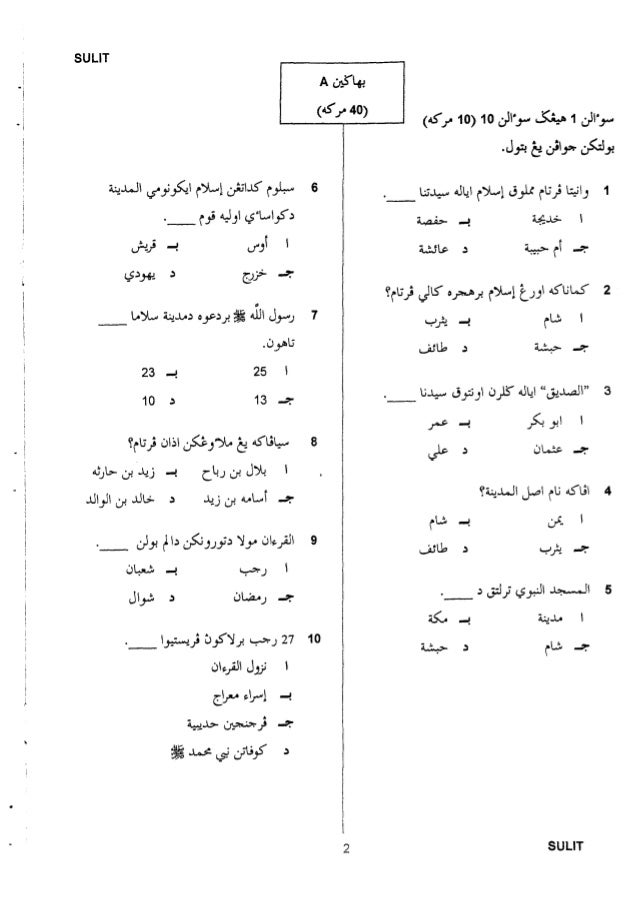 SULIT
بهاڬين A
(40 مركه)
سوءالن 1 هيڠݢ سوءالن 10 (10 مركه)
بولتكن جوابن يڠ بتول.
1 وانيتا ڤرتام مملوق إسلام اياله سيدتنا ____.
ا خديجة بـ حفصة
جـ أم حبيبة د عائشة
2 كماناكه اورڠ إسلام برهجره كالي ڤرتام؟
ا شام بـ يثرب
جـ حبشة د طائف
3 "الصديق" اياله ݢلرن اونتوق سيدنا ____.
ا ابو بكر بـ عمر
جـ عثمان د علي
4 اڤاكه نام اصل المدينة؟
ا يمن بـ شام
جـ يثرب د طائف
5 المسجد النبوي ترلتق د ____.
ا مدينة بـ مكة
جـ شام د حبشة
6 سبلوم كداتڠن إسلام ايكونومي المدينة
دكواساءي اوليه قوم ____.
ا أوس بـ قريش
جـ خزرج د يهودي
7 رسول الله ﷺ بردعوه دمدينة سلاما ____
تاهون.
ا 25 بـ 23
جـ 13 د 10
8 سياڤاكه يڠ ملاوڠكن اذان ڤرتام؟
ا بلال بن رباح بـ زيد بن حارثه
جـ أسامه بن زيد د خالد بن الوالد
9 القرءان مولا دتورونكن دالم بولن ____.
ا رجب بـ شعبان
جـ رمضان د شوال
10 27 رجب برلاكوڽ ڤريستيوا ____.
ا نزول القرءان
بـ إسراء معراج
جـ ڤرجنجين حديبية
د كوفاتن نبي محمد ﷺ
2
SULIT